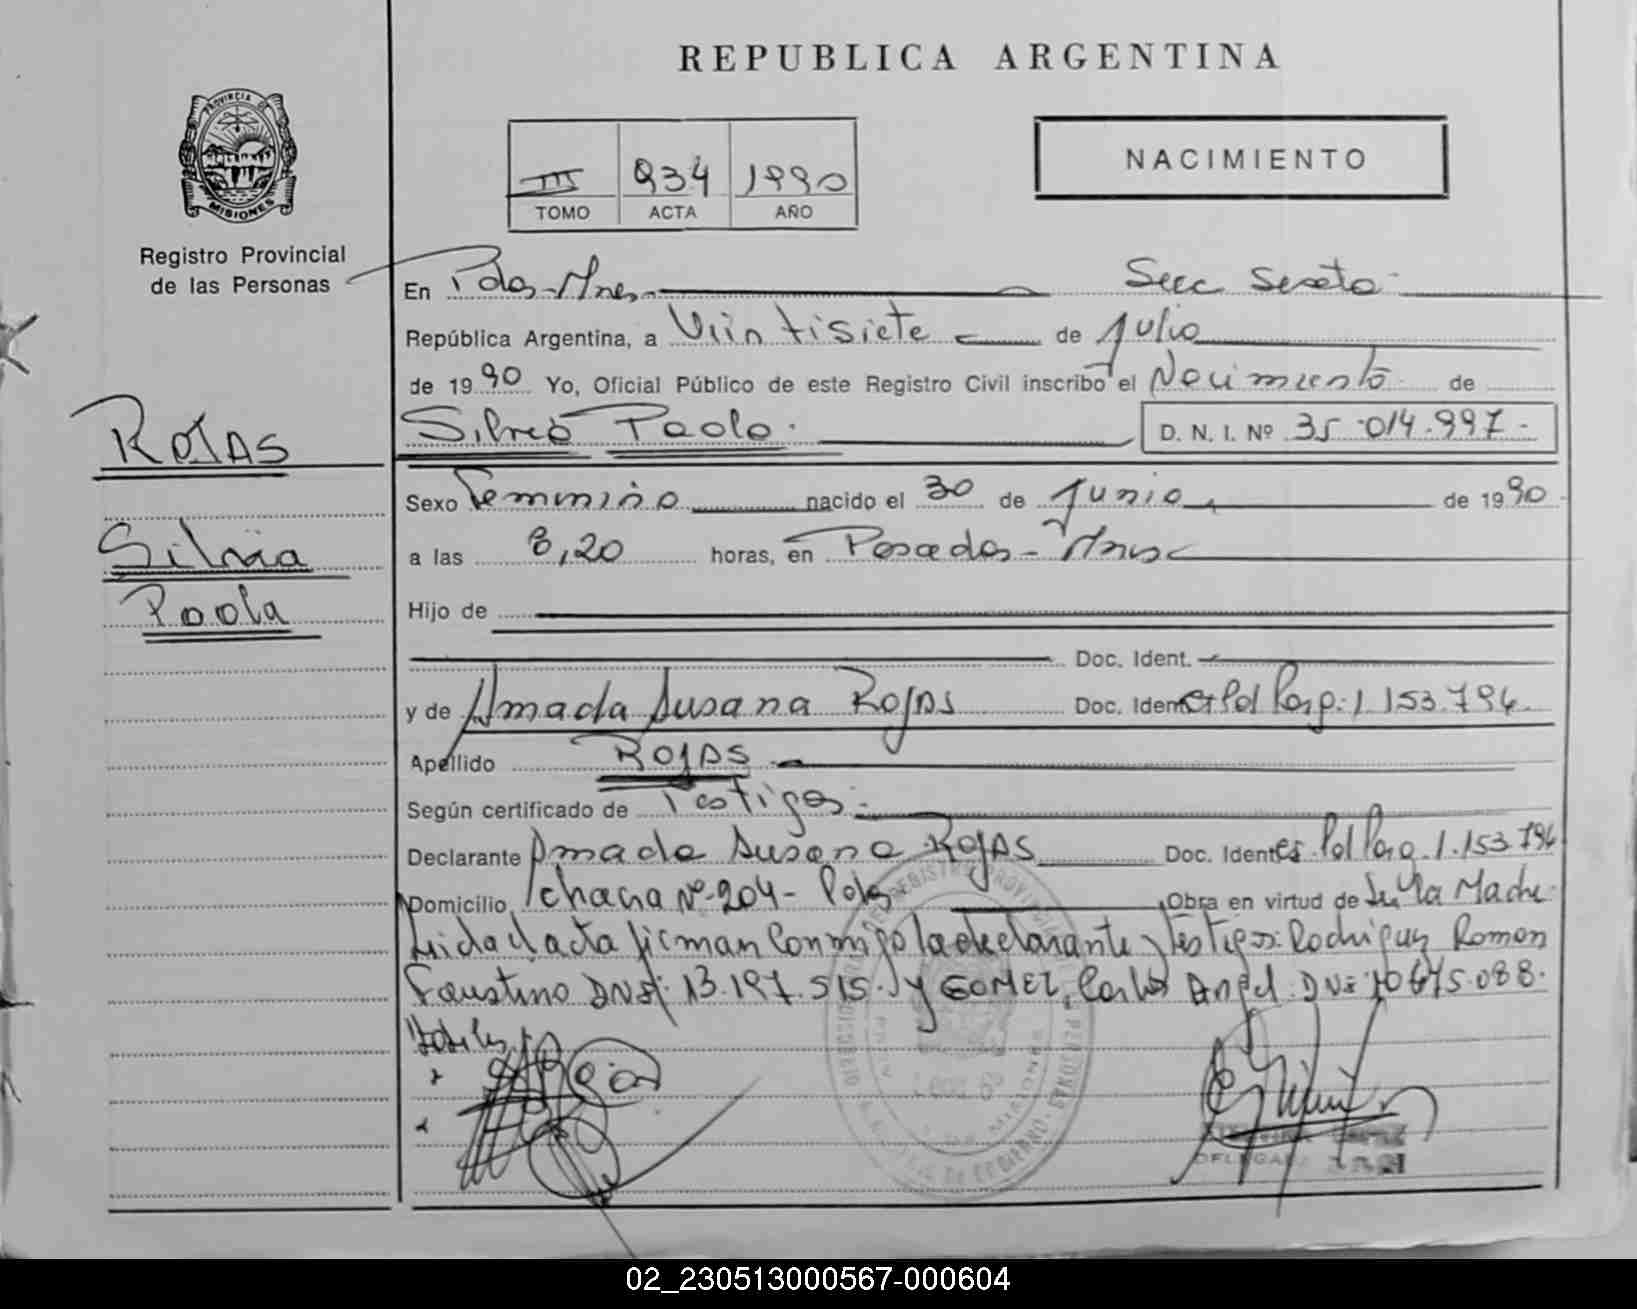 REPUBLICA ARGENTINA
PROVINCIA DE
MISIONES
Registro Provincial
de las Personas
III 934 1990
TOMO ACTA AÑO
NACIMIENTO
En Pdas-Mnes. Secc Sexta.
República Argentina, a Veintisiete de Julio
de 1990 Yo, Oficial Público de este Registro Civil inscribo el Nacimiento de
Silvia Paola. D. N. I. Nº 35.014.997.-
ROJAS
Silvia
Paola
Sexo Femenino nacido el 30 de Junio de 1990
a las 8,20 horas, en Posadas-Mnes
Hijo de
Doc. Ident.
y de Amada Susana Rojas Doc. Ident. Pol Parg. 1.153.794.
Apellido ROJAS.
Según certificado de Testigos.-
Declarante Amada Susana Rojas Doc. Ident. Pol Parg. 1.153.794
Domicilio chacra Nº 204- Pdas Obra en virtud de Ser la Madre.
Leida el acta firman conmigo la declarante y testigos: Rodriguez Roman
Faustino DNI 13.197.515. y GOMEZ, Carlos Angel. DNI
DELEGADA
02_230513000567-000604